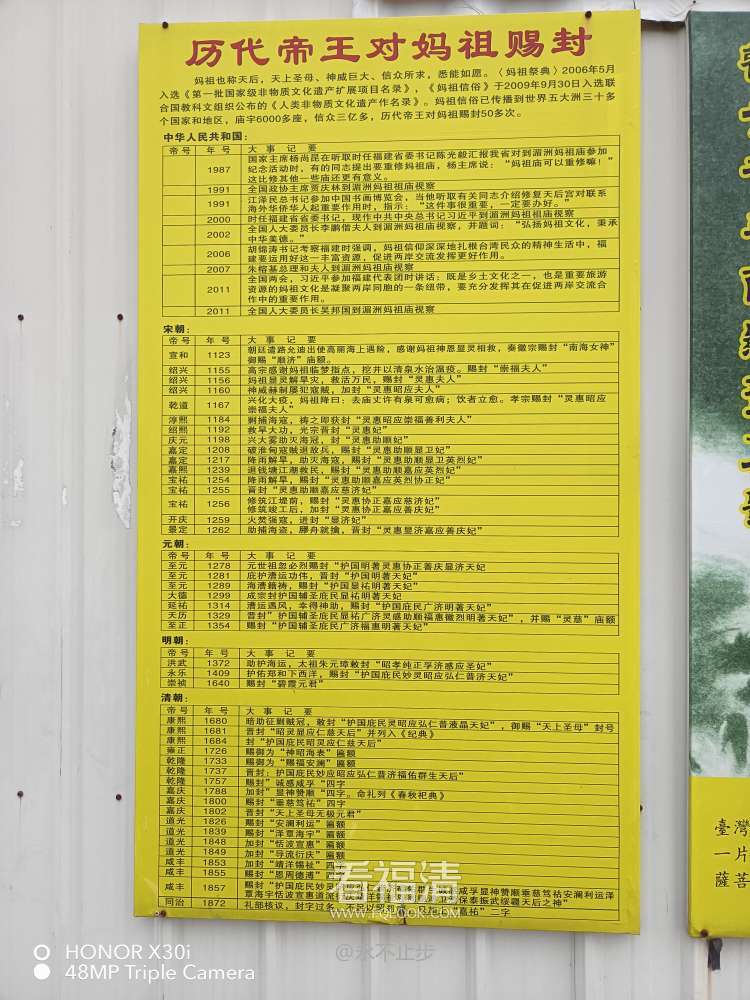 历代帝王对妈祖赐封
妈祖也称天后,天上圣母、神威巨大、信众所求,悉能如愿。《妈祖祭典》2006年5月
入选《第一批国家级非物质文化遗产扩展项目名录》,《妈祖信俗》于2009年9月30日入选联
合国教科文组织公布的《人类非物质文化遗产作名录》。妈祖信俗已传播到世界五大洲三十多
个国家和地区,庙宇6000多座,信众三亿多,历代帝王对妈祖赐封50多次。
中华人民共和国:
帝号 年号 大事记要
国家主席杨尚昆在听取时任福建省委书记陈光毅汇报我省对到湄洲妈祖庙参加
1987 纪念活动时,有的同志提出要重修妈祖庙,杨主席说:“妈祖庙可以重修嘛!”
这比修其他一些庙还更有意义。
1991 全国政协主席贾庆林到湄洲妈祖祖庙视察
1991 江泽民总书记参加中国书画博览会,当他听取有关同志介绍修复天后宫对联系
海外华侨华人起重要作用时,指示:“这件事很重要,一定要办好。”
2000 时任福建省省委书记,现作中共中央总书记习近平到湄洲妈祖祖庙视察
2002 全国人大委员长李鹏偕夫人到湄洲妈祖庙视察,并题词:“弘扬妈祖文化,秉承
中华美德。”
2006 胡锦涛书记考察福建时强调,妈祖信仰深深地扎根台湾民众的精神生活中,福
建要运用好这一丰富资源,促进两岸交流发挥更好作用。
2007 朱镕基总理和夫人到湄洲妈祖庙视察
全国两会,习近平参加福建代表团时讲话:既是乡土文化之一,也是重要旅游
2011 资源的妈祖文化是凝聚两岸同胞的一条纽带,要充分发挥其在促进两岸交流合
作中的重要作用。
2011 全国人大委员长吴邦国到湄洲妈祖庙视察
宋朝:
帝号 年号 大事记要
宣和 1123 朝廷遣路允迪出使高丽海上遇险,感谢妈祖神恩显灵相救,奏徽宗赐封“南海女神”
御赐“顺济”庙额。
绍兴 1155 高宗感谢妈祖临梦指点,挖井以清泉水治温疫。赐封“崇福夫人”
绍兴 1156 妈祖显灵解旱灾,救活万民,赐封“灵惠夫人”
绍兴 1160 神威赫制屡犯寇贼,加封“灵惠昭应夫人”
乾道 1167 兴化大疫,妈祖降曰:去庙丈许有泉可愈病;饮者立愈。孝宗赐封“灵惠昭应
崇福夫人”
淳熙 1184 剿捕海寇,祷之即获封“灵惠昭应崇福善利夫人”
绍熙 1192 救旱大功,光宗晋封“灵惠妃”
庆元 1198 兴大雾助灭海寇,封“灵惠助顺妃”
嘉定 1208 破淮甸寇贼退敌兵,赐封“灵惠助顺显卫妃”
嘉定 1217 降雨解旱,助灭海寇,赐封“灵惠助顺显卫英烈妃”
嘉熙 1239 退钱塘江潮救民,赐封“灵惠助顺嘉应英烈妃”
宝祐 1254 降雨解旱,赐封“灵惠助顺嘉应英烈协正妃”
宝祐 1255 晋封“灵惠助顺嘉应慈济妃”
宝祐 1256 修筑江堤前,赐封“灵惠协正嘉应慈济妃”
修筑竣工后,加封“灵惠协正嘉应善庆妃”
开庆 1259 火焚强寇,进封“显济妃”
景定 1262 助捕海盗,膠舟就擒,晋封“灵惠显济嘉应善庆妃”
元朝:
帝号 年号 大事记要
至元 1278 元世祖忽必烈赐封“护国明著灵惠协正善庆显济天妃
至元 1281 庇护漕运功伟,晋封“护国明著天妃”
至元 1289 海漕籍祷,赐封“护国显祐明著天妃”
大德 1299 成宗封护国辅圣庇民显祐明著天妃
延祐 1314 漕运遇风,幸得神助,赐封“护国庇民广济明著天妃”
天历 1329 晋封“护国辅圣庇民显祐广济灵感助顺福惠徽烈明著天妃”,并赐“灵慈”庙额
至正 1354 赐封“护国辅圣庇民广济福惠明著天妃”
明朝:
帝号 年号 大事记要
洪武 1372 助护海运,太祖朱元璋敕封“昭孝纯正孚济感应圣妃”
永乐 1409 护佑郑和下西洋,赐封“护国庇民妙灵昭应弘仁普济天妃”
崇祯 1640 赐封“碧霞元君”
清朝:
帝号 年号 大事记要
康熙 1680 暗助征剿贼寇,敕封“护国庇民妙灵昭应弘仁普济天妃”,御赐“天上圣母”封号
康熙 1681 晋封“昭灵显应仁慈天后”并列入《纪典》
康熙 1684 封“护国庇民昭灵应仁兹天后”
雍正 1726 赐御为“神昭海表”匾额
乾隆 1733 赐御为“赐福安澜”匾额
乾隆 1737 晋封:护国庇民妙应昭应弘仁普济福佑群生天后”
乾隆 1757 赐封“诚感咸孚”四字
嘉庆 1788 加封“显神赞顺”四字。命礼列《春秋祀典》
嘉庆 1800 赐封“垂慈笃祐”四字
嘉庆 1802 晋封“天上圣母无极元君”
道光 1826 赐封“安澜利运”匾额
道光 1839 赐封“泽覃海宇”匾额
道光 1848 加封“恬波宣惠”匾额
道光 1849 加封“导流衍庆”匾额
咸丰 1853 加封“靖洋锡祉”四
咸丰 1855 赐封“恩周德溥”四
咸丰 1857 赐封“护国庇民妙灵 咸孚显神赞顺垂慈笃祜安澜利运泽
覃海宇恬波宣惠道流 保泰振武绥疆天后之神”
同治 1872 礼部核议,封字过多, 嘉祐”二字
看福清
WWW.FQLOOK.COM
@永不止步
HONOR X30i
48MP Triple Camera
臺灣
一片
薩菩